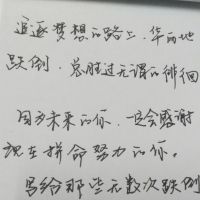 追逐梦想的路上，华丽地
跌倒，总胜过无谓的徘徊
因为未来的你，一定会感谢
现在拼命努力的你。
写给那些无数次跌倒